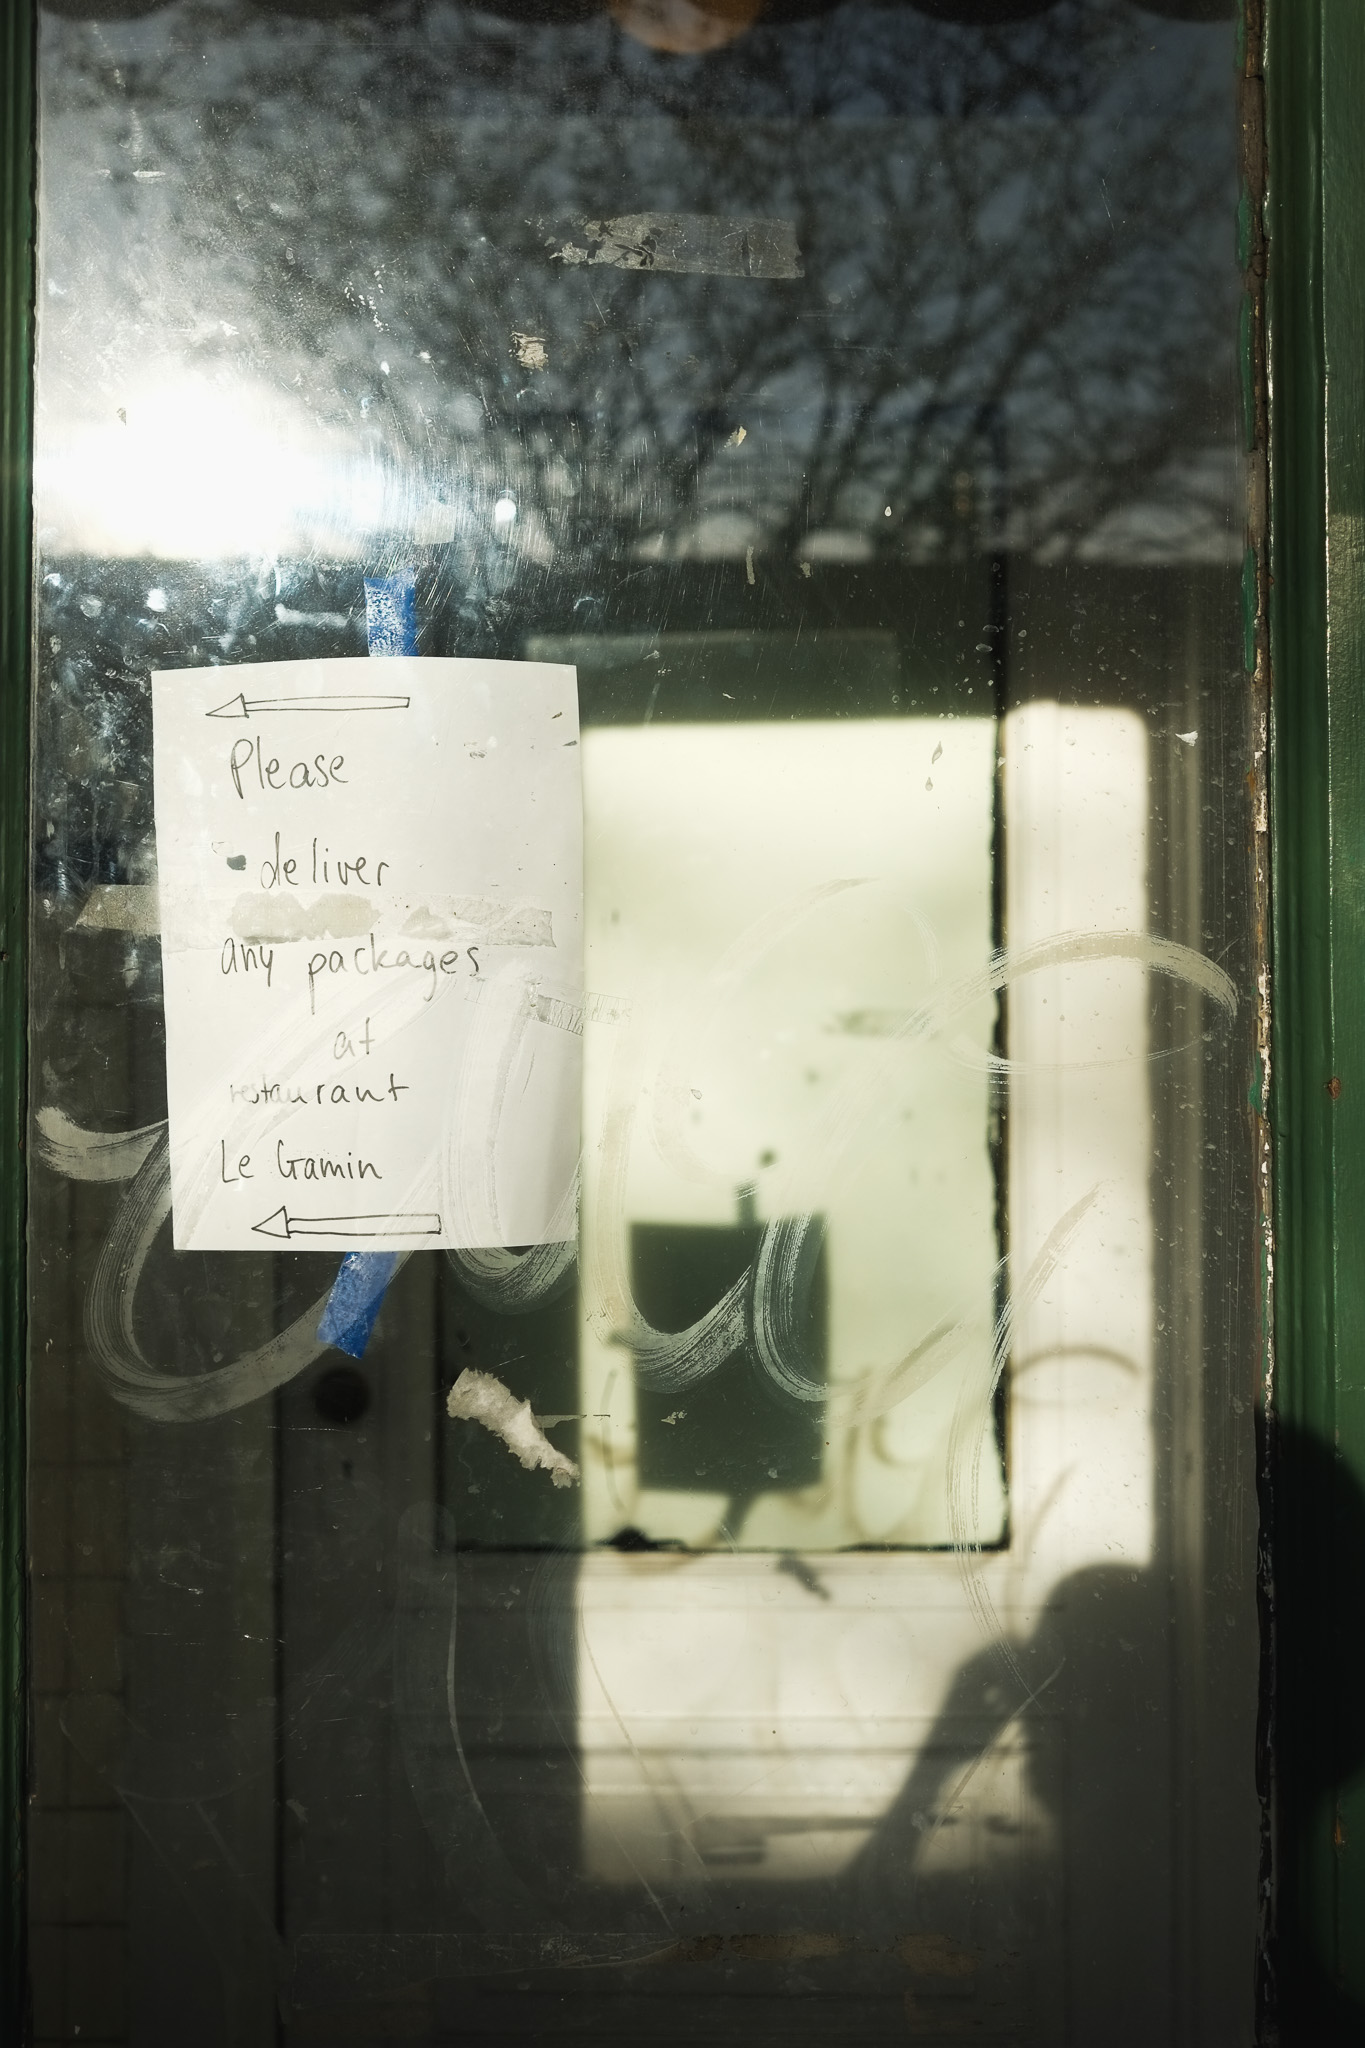 Please
deliver
any packages
at
restaurant
Le Gamin